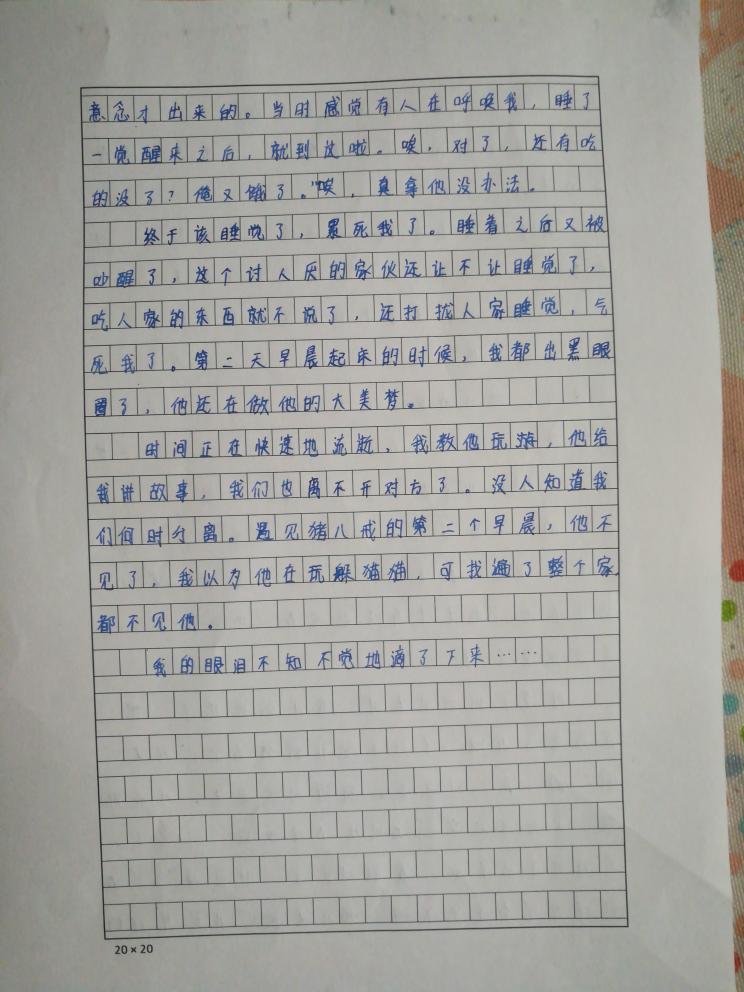 意念才出来的。当时感觉有人在呼唤我，睡了
一觉醒来之后，就到这啦。唉，对了，还有吃
的没了？俺又饿了。"唉，真拿他没办法。
终于该睡觉了，累死我了。睡着之后又被
吵醒了，这个讨人厌的家伙还让不让睡觉了，
吃人家的东西就不说了，还打扰人家睡觉，气
死我了。第二天早晨起床的时候，我都出黑眼
圈了，他还在做他的大美梦。
时间正在快速地流逝，我教他玩游，他给
我讲故事，我们也离不开对方了。没人知道我
们何时分离。遇见猪八戒的第二个早晨，他不
见了，我以为他在玩躲猫猫，可找遍了整个家
都不见他。
我的眼泪不知不觉地滴了下来……
20×20